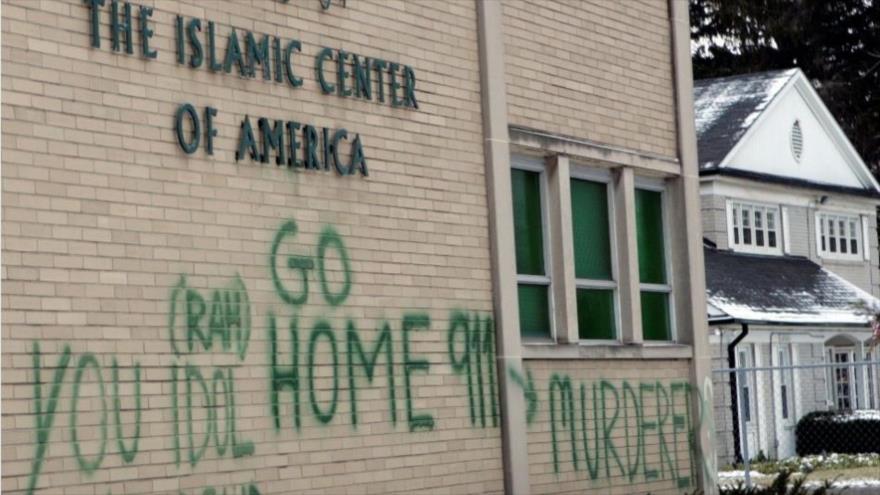 THE ISLAMIC CENTER
OF AMERICA
GO
(RAH)
YOU IDOL HOME 911 MURDERER